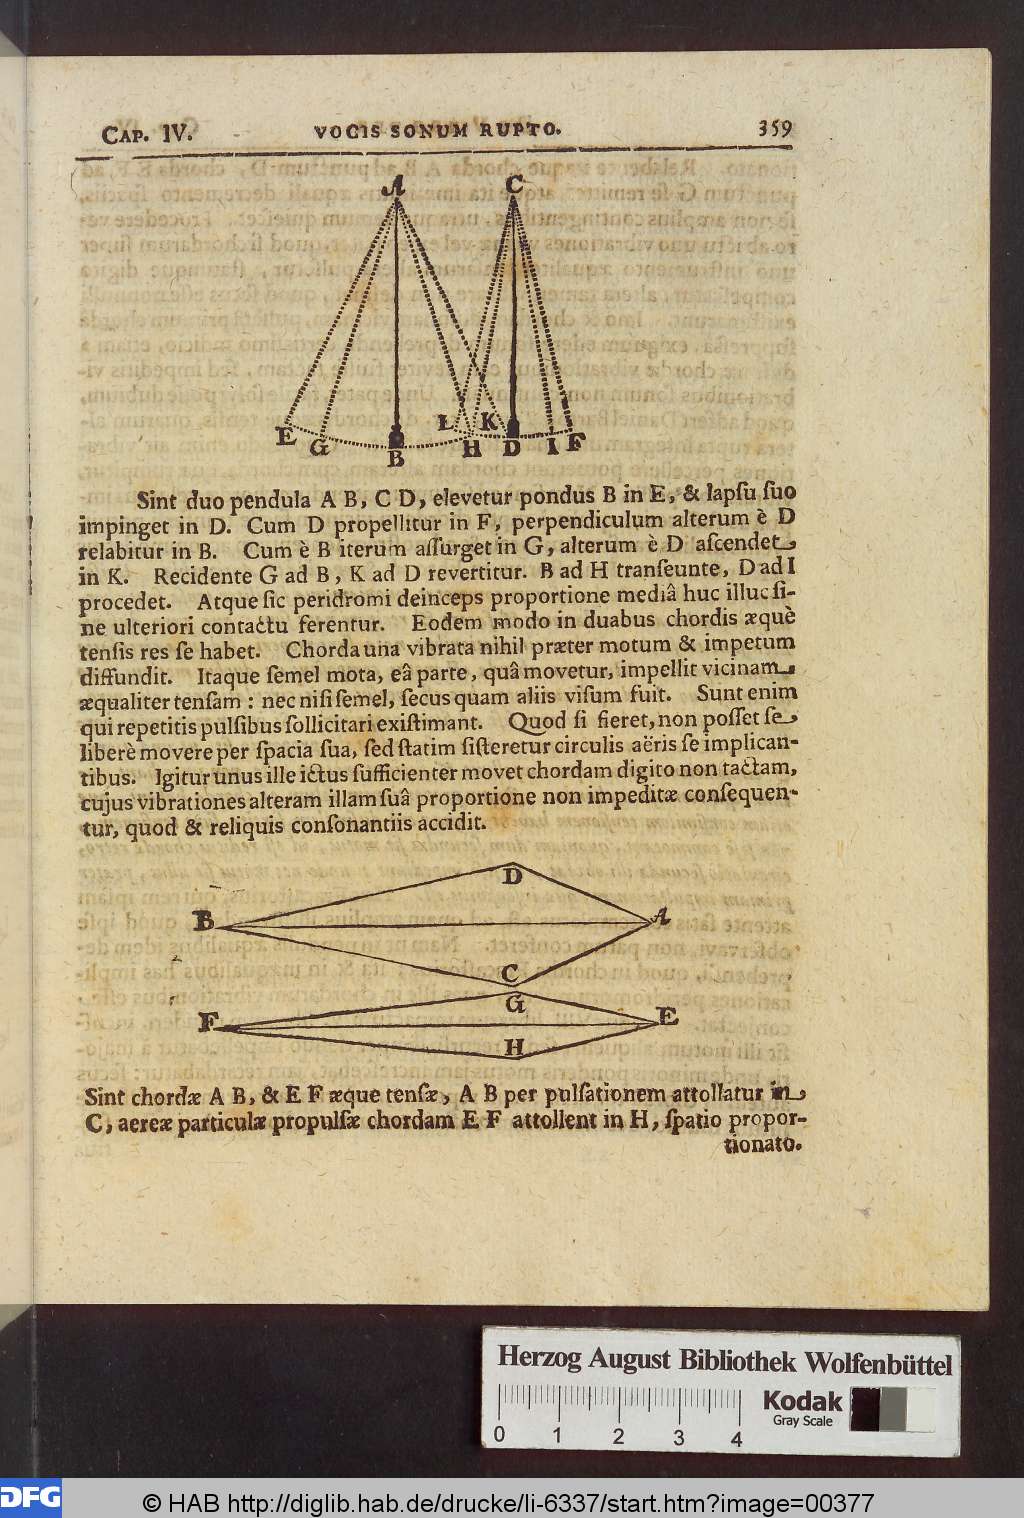 CAP. IV. VOCIS SONUM RUPTO. 359
A C
E G B L H K D I F
Sint duo pendula A B, C D, elevetur pondus B in E, & lapſu ſuo
impinget in D. Cum D propellitur in F, perpendiculum alterum è D
relabitur in B. Cum è B iterum aſſurget in G, alterum è D aſcendet
in K. Recidente G ad B, K ad D revertitur. B ad H tranſeunte, D ad I
procedet. Atque ſic peridromi deinceps proportione mediâ huc illuc ſi-
ne ulteriori contactu ferentur. Eodem modo in duabus chordis æquè
tenſis res ſe habet. Chorda una vibrata nihil præter motum & impetum
diffundit. Itaque ſemel mota, eâ parte, quâ movetur, impellit vicinam
æqualiter tenſam : nec niſi ſemel, ſecus quam aliis viſum fuit. Sunt enim
qui repetitis pulſibus ſollicitari exiſtimant. Quod ſi fieret, non poſſet ſe
liberè movere per ſpacia ſua, ſed ſtatim ſiſteretur circulis aëris ſe implican-
tibus. Igitur unus ille ictus ſufficienter movet chordam digito non tactam,
cujus vibrationes alteram illam ſuâ proportione non impeditæ conſequen-
tur, quod & reliquis conſonantiis accidit.
D
B A
C
G
F E
H
Sint chordæ A B, & E F æque tenſæ, A B per pulſationem attollatur in
C, aereæ particulæ propulſæ chordam E F attollent in H, ſpatio propor-
tionato.
Herzog August Bibliothek Wolfenbüttel
Kodak
Gray Scale
0 1 2 3 4
DFG
© HAB http://diglib.hab.de/drucke/li-6337/start.htm?image=00377